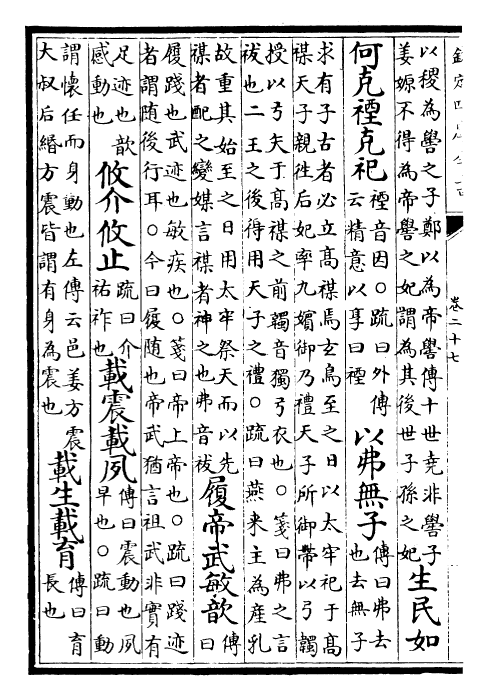 欽定四庫全書
卷二十七
以稷為嚳之子鄭以為帝嚳傳十世堯非嚳子
姜嫄不得為帝嚳之妃謂為其後世子孫之妃
生民如
何克禋克祀
禋音因○疏曰外傳
云精意以享曰禋
以弗無子
傳曰弗去
也去無子
求有子古者必立高禖焉玄鳥至之日以太牢祀于高
禖天子親徃后妃率九嬪御乃禮天子所御帶以弓韣
授以弓矢于高禖之前韣音獨弓衣也○箋曰弗之言
祓也二王之後得用天子之禮○疏曰燕来主為產乳
故重其始至之日用太牢祭天而以先
禖者配之變媒言禖者神之也弗音祓
履帝武敏歆
傳
曰
履踐也武迹也敏疾也○箋曰帝上帝也○疏曰踐迹
者謂随後行耳○今曰履随也帝武猶言祖武非實有
足迹也歆
感動也
攸介攸止
疏曰介
祐祚也
載震載夙
傳曰震動也夙
早也○疏曰動
謂懐任而身動也左傳云邑姜方震
大叔后緡方震皆謂有身為震也
載生載育
傳曰育
長也